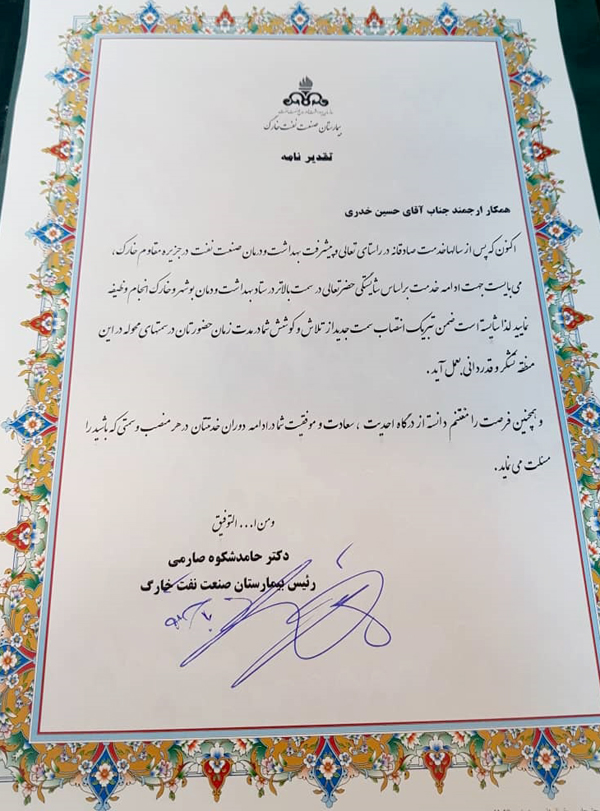 بیمارستان صنعت نفت خارک
تقدیر نامه
همکار ارجمند جناب آقای حسین خدری
اکنون که پس از سالها خدمت صادقانه در راستای تعالی و پیشرفت بهداشت و درمان صنعت نفت در جزیره مقاوم خارک ،
می بایست جهت ادامه خدمت بر اساس شایستگی حضرتعالی در سمت بالاتر در ستاد بهداشت و درمان بوشهر و خارک انجام وظیفه
نمایید لذا شایسته است ضمن تبریک انتصاب سمت جدید از تلاش و کوشش شما در مدت زمان حضورتان در سمتهای محوله در این
منطقه تشکر و قدردانی بعمل آید .
و همچنین فرصت را مغتنم دانسته از درگاه احدیت ، سعادت و موفقیت شما در ادامه دوران خدمتتان در هر منصب و سمتی که باشید را
مسئلت می نماید .
ومن ا... التوفیق
دکتر حامد شکوه صارمی
رئیس بیمارستان صنعت نفت خارگ